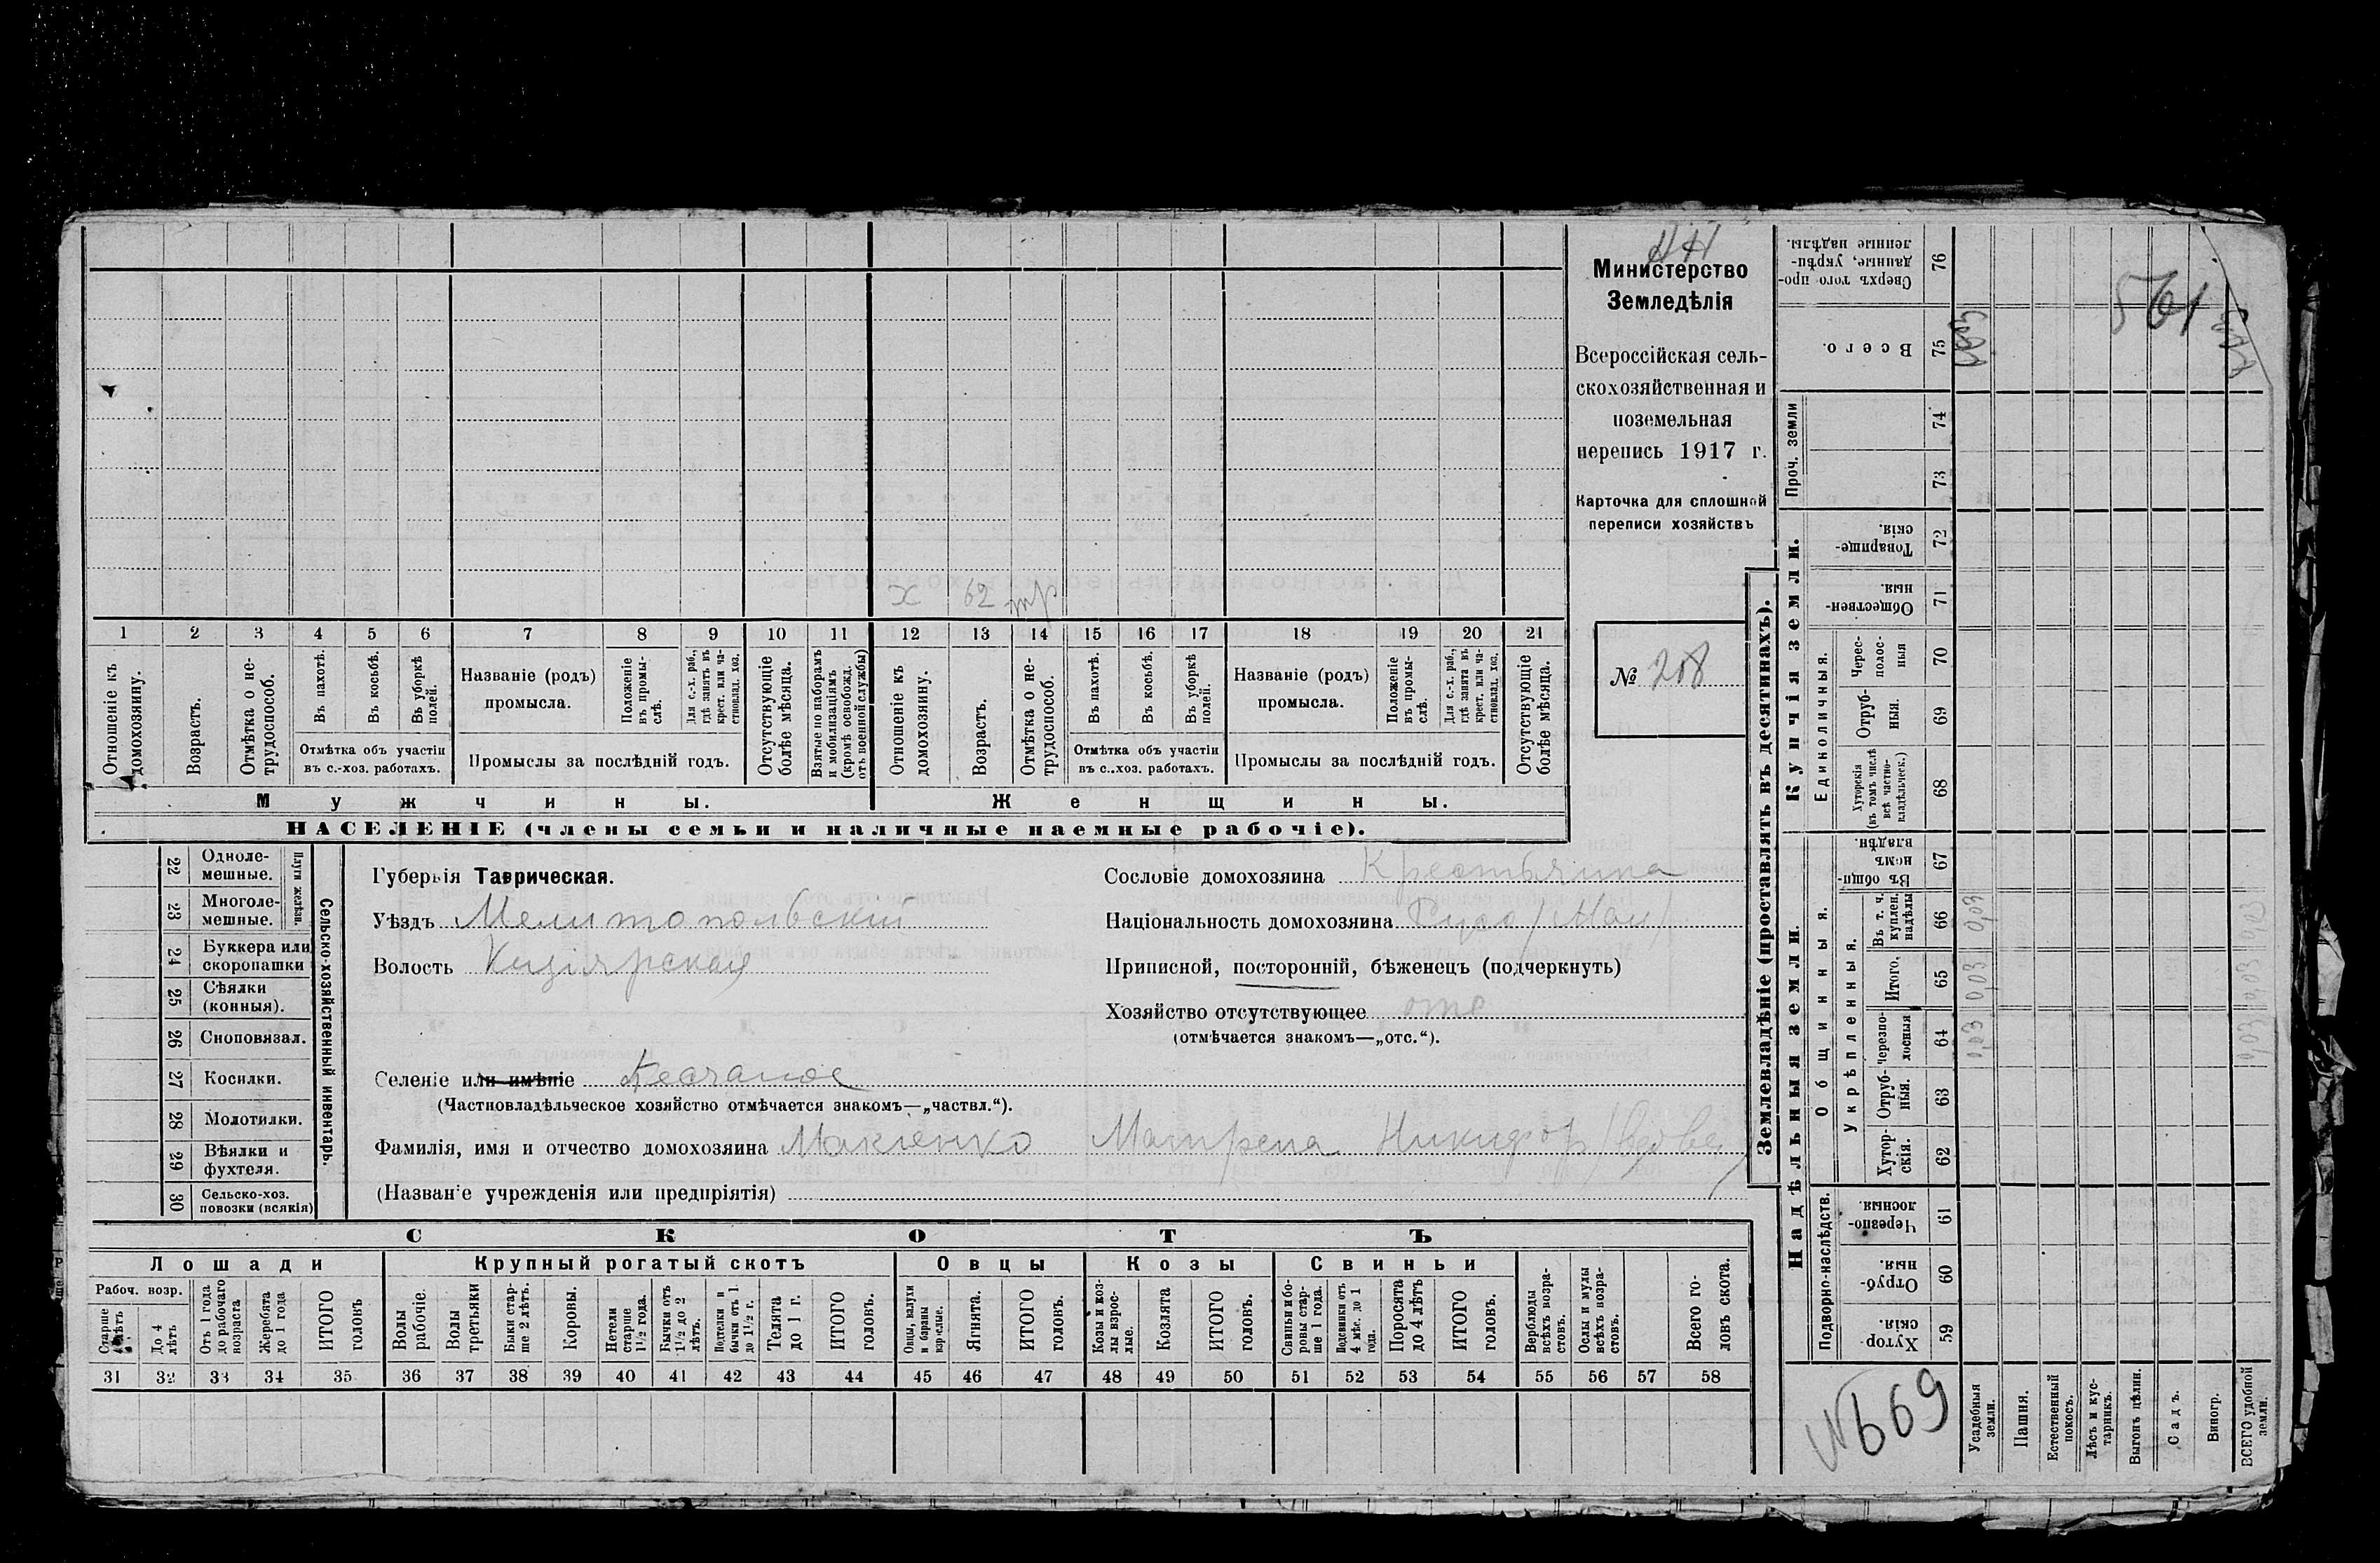 НН
Министерство
Земледѣлія
Всероссійская сель-
скохозяйственная и
поземельная
перепись 1917 г.
Карточка для сплошной
переписи хозяйствъ
№ 208
х 62 тр
1 2 3 4 5 6 7 8 9 10 11 12 13 14 15 16 17 18 19 20 21
Отношеніе къ домохозяину.
Возрастъ.
Отмѣтка о не-трудоспособ.
Въ пахотѣ.
Въ косьбѣ.
Въ уборкѣ полей.
Отмѣтка объ участіи
въ с.-хоз. работахъ.
Названіе (родъ)
промысла.
Положеніе въ промыс-лѣ.
Для с.-х. раб., гдѣ занятъ въ крест. или ча-стновлад. хоз.
Промыслы за послѣдній годъ.
Отсутствующіе болѣе мѣсяца.
Взятые по наборамъ и мобилизаціямъ (кромѣ освобожд. отъ военной службы)
Отношеніе къ домохозяину.
Возрастъ.
Отмѣтка о не-трудоспособ.
Въ пахотѣ.
Въ косьбѣ.
Въ уборкѣ полей.
Отмѣтка объ участіи
въ с.-хоз. работахъ.
Названіе (родъ)
промысла.
Положеніе въ промы-слѣ.
Для с.-х. раб., гдѣ занята въ крест. или ча-стновлад. хоз.
Промыслы за послѣдній годъ.
Отсутствующіе болѣе мѣсяца.
Мужчины. Женщины.
НАСЕЛЕНІЕ (члены семьи и наличные наемные рабочіе).
Сельско-хозяйственный инвентарь.
Плуги желѣзн.
22 Одноле-мешные.
23 Многоле-мешные.
24 Буккера или скоропашки
25 Сѣялки (конныя).
26 Сноповязал.
27 Косилки.
28 Молотилки.
29 Вѣялки и фухтеля.
30 Сельско-хоз. повозки (всякія)
Губернія Таврическая.
Уѣздъ Мелитопольскій
Волость Кизіярская
Селеніе или имѣніе Песчаное
(Частновладѣльческое хозяйство отмѣчается знакомъ—„частвл.“).
Фамилія, имя и отчество домохозяина Макіенко Матрена Никифор
(Названіе учрежденія или предпріятія)
Сословіе домохозяина Крестьянка
Національность домохозяина
Приписной, посторонній, бѣженецъ (подчеркнуть)
Хозяйство отсутствующее отс
(отмѣчается знакомъ—„отс.“).
СКОТЪ
Лошади Крупный рогатый скотъ Овцы Козы Свиньи
Рабоч. возр.
Старше 4 лѣтъ
До 4 лѣтъ
Отъ 1 года до рабочаго возраста
Жеребята до 1 года
ИТОГО головъ
Волы рабочіе.
Волы третьяки
Быки стар-ше 2 лѣтъ.
Коровы.
Нетели старше 1½ года.
Бычки отъ 1½ до 2 лѣтъ.
Подтелки и бычки отъ 1 до 1½ г.
Телята до 1 г.
ИТОГО головъ.
Овцы, валухи и бараны взрослые.
Ягнята.
ИТОГО головъ.
Козы и коз-лы взрос-лые.
Козлята
ИТОГО головъ.
Свиньи и бо-ровы стар-ше 1 года.
Подсвинки отъ 4 мѣс. до 1 года.
Поросята до 4 лѣтъ
ИТОГО головъ.
Верблюды всѣхъ возра-стовъ.
Ослы и мулы всѣхъ возра-стовъ.
Всего го-ловъ скота.
31 32 33 34 35 36 37 38 39 40 41 42 43 44 45 46 47 48 49 50 51 52 53 54 55 56 57 58
Землевладѣніе (проставлять въ десятинахъ).
Купчія земли.
Надѣльныя земли.
Проч. земли
Единоличныя.
Общинныя.
Укрѣпленныя.
Подворно-наслѣдств.
76 Сверхъ того про-данные, укрѣп-ленные надѣлы.
75 Всего.
74
73
72 Товарище-скія.
71 Обществен-ныя.
70 Черес-полос-ныя
69 Отруб-ныя.
68 Хуторскія (въ томъ числѣ всѣ частно-владѣльческ.)
67 Въ общин-номъ владѣн.
66 Въ т. ч. куплен. надѣлы
65 Итого.
64 Черезпо-лосныя
63 Отруб-ныя.
62 Хутор-скія.
61 Черезпо-лосныя.
60 Отруб-ныя.
59 Хутор-скія.
0,03 0,03 0,03
0,03 0,03 0,03
561
№669
Усадебныя земли.
Пашня.
Естественный покосъ.
Лѣсъ и кус-тарникъ.
Выгонъ цѣлин.
Садъ.
Виногр.
ВСЕГО удобной земли.